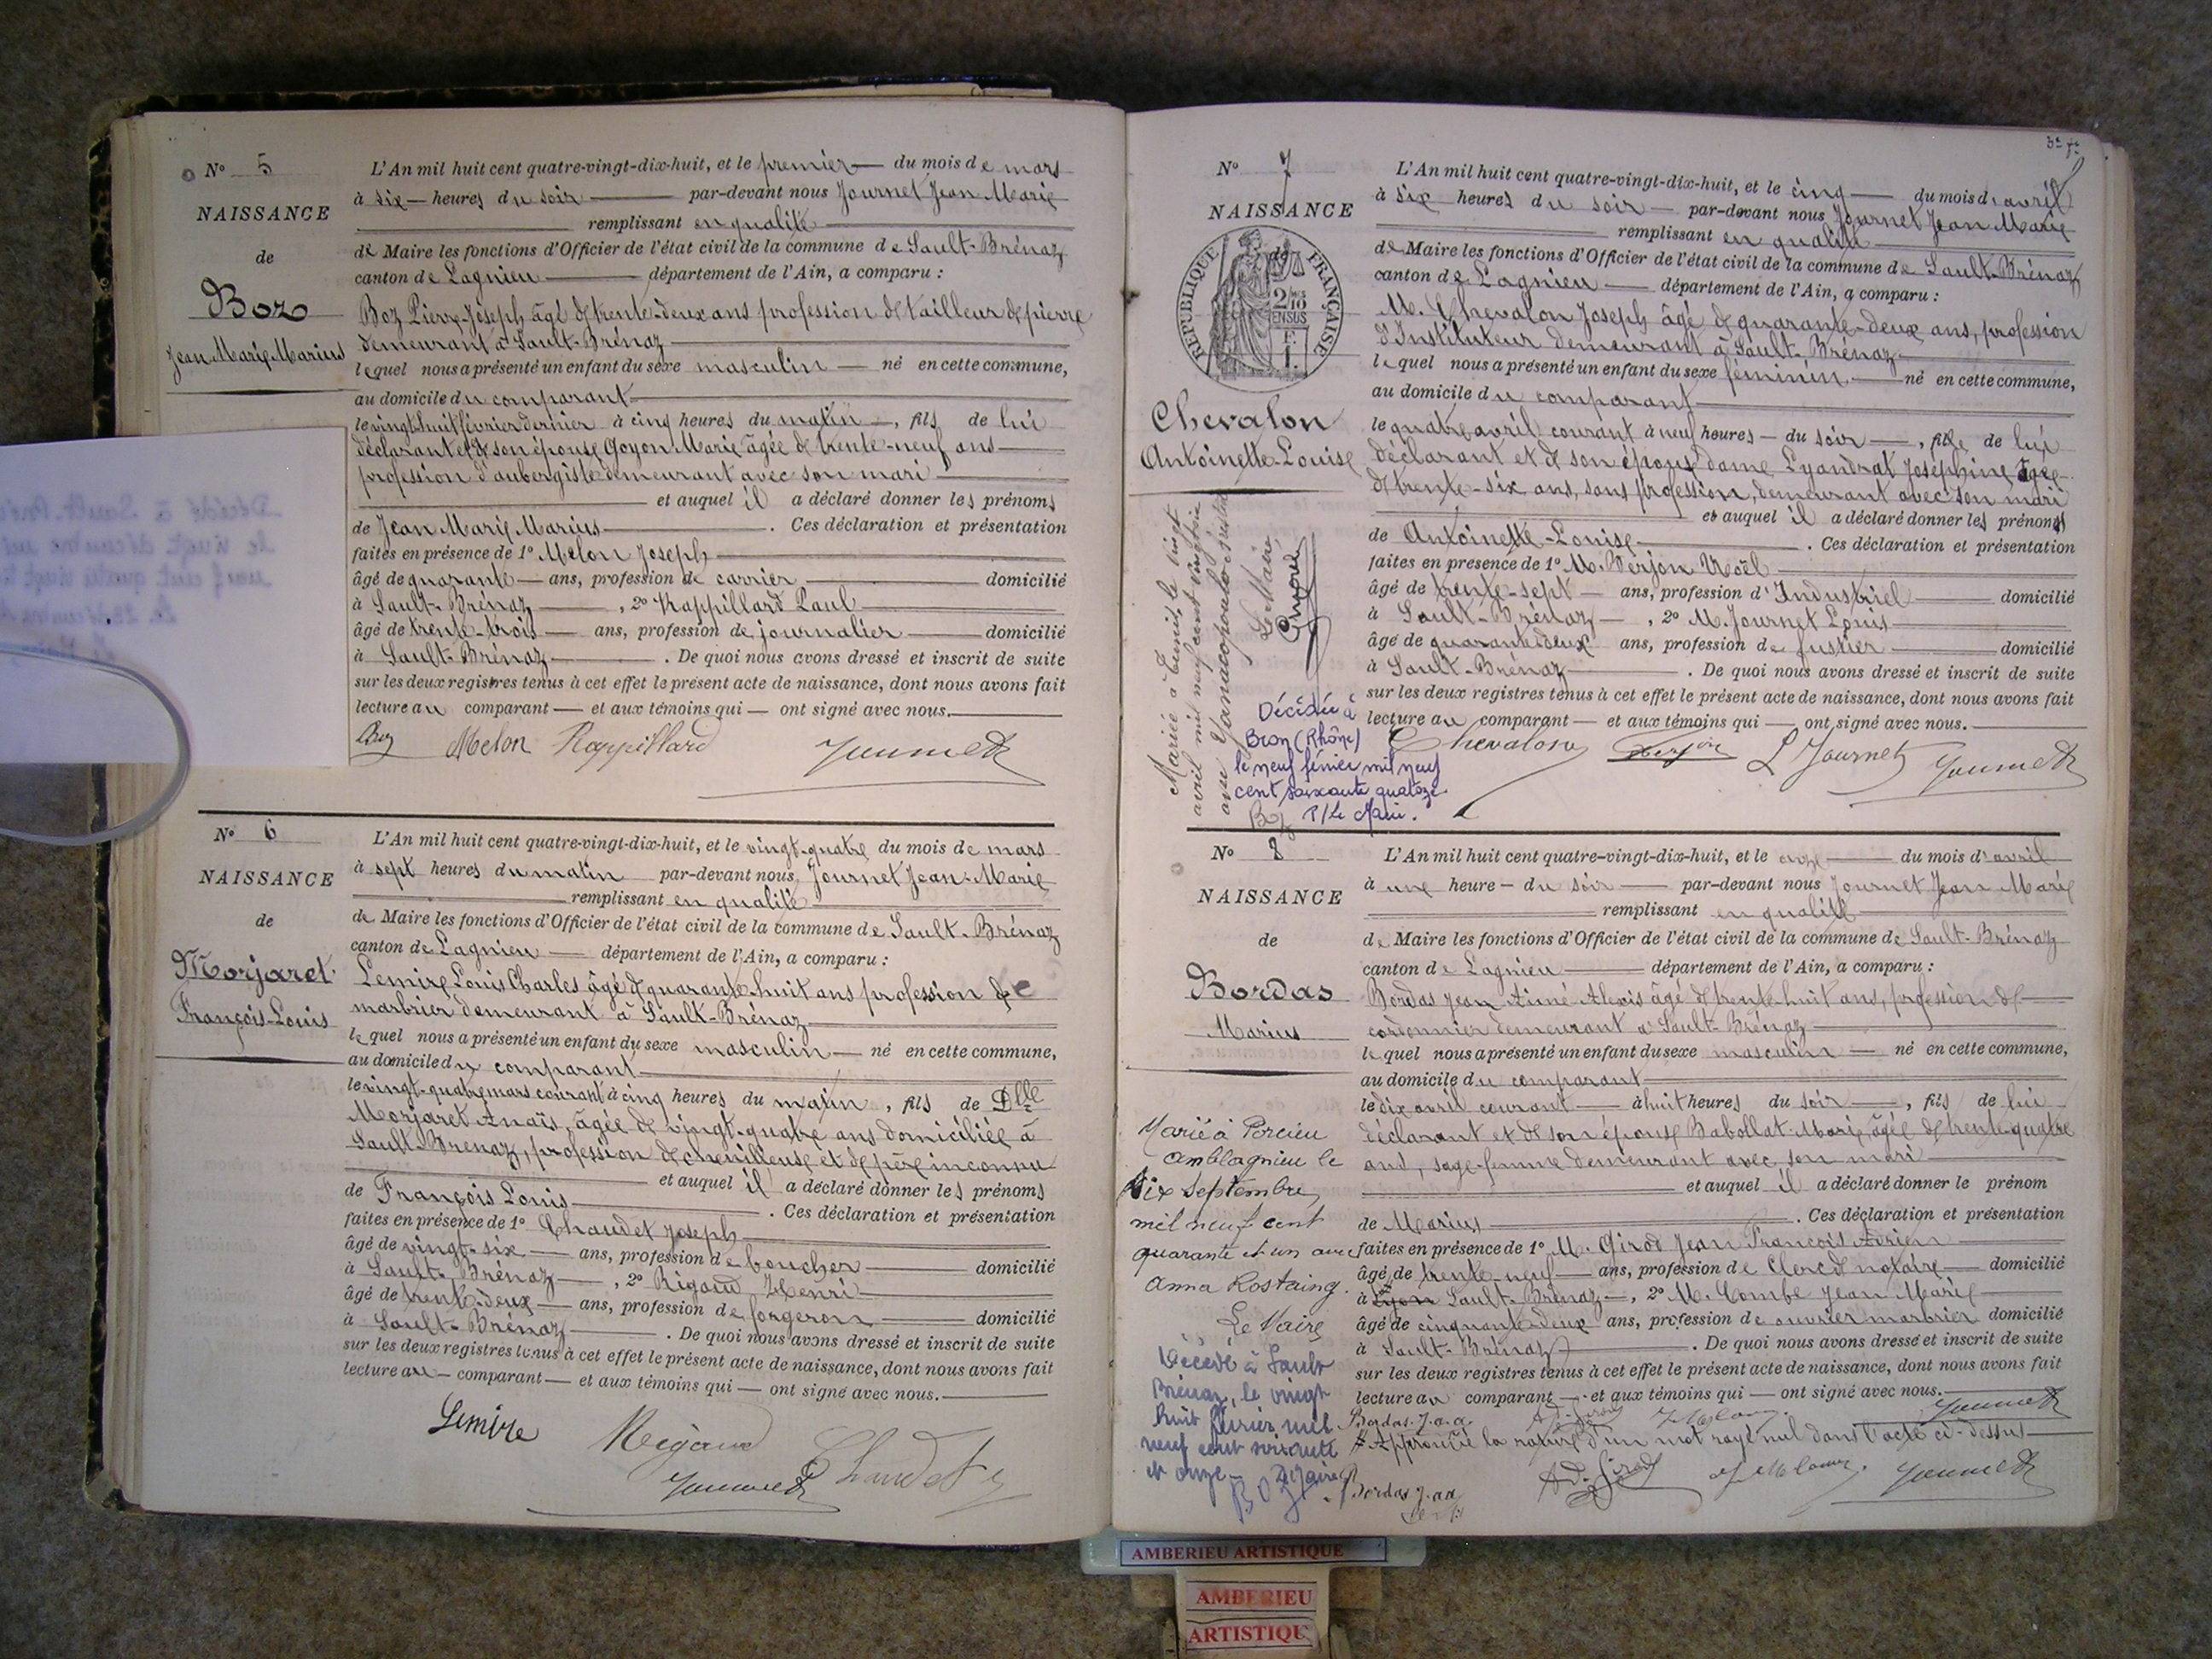 N° 5
NAISSANCE
de
Boz
Jean Marie Marius
L'An mil huit cent quatre-vingt-dix-huit, et le premier du mois de mars
à six heures du soir par-devant nous Journet Jean Marie
remplissant en qualité
de Maire les fonctions d'Officier de l'état civil de la commune de Sault-Brénaz
canton de Lagnieu département de l'Ain, a comparu :
Boz Pierre-Joseph âgé de trente-deux ans profession de tailleur de pierre
demeurant à Sault-Brénaz
lequel nous a présenté un enfant du sexe masculin né en cette commune,
au domicile du comparant
le vingt huit février dernier à cinq heures du matin, fils de lui
déclarant et de son épouse Goyon Marie âgée de trente-neuf ans
profession d'aubergiste demeurant avec son mari
et auquel il a déclaré donner les prénoms
de Jean Marie Marius. Ces déclaration et présentation
faites en présence de 1° Melon Joseph
âgé de quarante ans, profession de carrier domicilié
à Sault-Brénaz, 2° Rappillard Paul
âgé de trente-trois ans, profession de journalier domicilié
à Sault-Brénaz. De quoi nous avons dressé et inscrit de suite
sur les deux registres tenus à cet effet le présent acte de naissance, dont nous avons fait
lecture au comparant et aux témoins qui ont signé avec nous.
Boz Melon Rappillard Journet
N° 6
NAISSANCE
de
Morjaret
François-Louis
L'An mil huit cent quatre-vingt-dix-huit, et le vingt-quatre du mois de mars
à sept heures du matin par-devant nous Journet Jean-Marie
remplissant en qualité
de Maire les fonctions d'Officier de l'état civil de la commune de Sault-Brénaz
canton de Lagnieu département de l'Ain, a comparu :
Lemire Louis Charles âgé de quarante-huit ans profession de
marbrier demeurant à Sault-Brénaz
lequel nous a présenté un enfant du sexe masculin né en cette commune,
au domicile du comparant
le vingt-quatre mars courant à cinq heures du matin, fils de Dlle
Morjaret Anaïs, âgée de vingt-quatre ans domiciliée à
Sault-Brenaz, profession de chenilleuse et de père inconnu
et auquel il a déclaré donner les prénoms
de François Louis. Ces déclaration et présentation
faites en présence de 1° Chaudet Joseph
âgé de vingt-six ans, profession de boucher domicilié
à Sault-Brénaz, 2° Rigaud Henri
âgé de trente-deux ans, profession de forgeron domicilié
à Sault-Brénaz. De quoi nous avons dressé et inscrit de suite
sur les deux registres tenus à cet effet le présent acte de naissance, dont nous avons fait
lecture au comparant et aux témoins qui ont signé avec nous.
Lemire Rigaud Chaudet
Journet
N° 7
NAISSANCE
de
RÉPUBLIQUE FRANÇAISE
2/10
EN SUS
Chevalon
Antoinette-Louise
L'An mil huit cent quatre-vingt-dix-huit, et le cinq du mois d'avril
à six heures du soir par-devant nous Journet Jean Marie
remplissant en qualité
de Maire les fonctions d'Officier de l'état civil de la commune de Sault-Brénaz
canton de Lagnieu département de l'Ain, a comparu :
M. Chevalon Joseph âgé de quarante-deux ans, profession
d'Instituteur demeurant à Sault-Brénaz
lequel nous a présenté un enfant du sexe féminin né en cette commune,
au domicile du comparant
le quatre avril courant à neuf heures du soir, fille de lui
déclarant et de son épouse dame Lyandrat Joséphine âgée
de trente-six ans, sans profession, demeurant avec son mari
et auquel il a déclaré donner les prénoms
de Antoinette-Louise. Ces déclaration et présentation
faites en présence de 1° M. Verjon Noël
âgé de trente-sept ans, profession d'Industriel domicilié
à Sault-Brénaz, 2° M. Journet Louis
âgé de quarante deux ans, profession de fustier domicilié
à Sault-Brénaz. De quoi nous avons dressé et inscrit de suite
sur les deux registres tenus à cet effet le présent acte de naissance, dont nous avons fait
lecture au comparant et aux témoins qui ont signé avec nous.
Chevalon Verjon L Journet Journet
Mariée à Tunis le vingt
avril mil neuf cent vingt
avec
Le Maire
Décédée à
Bron (Rhône)
le neuf février mil neuf
cent soixante quatoze
P/Le Maire.
N° 8
NAISSANCE
de
Bordas
Marius
L'An mil huit cent quatre-vingt-dix-huit, et le onze du mois d'avril
à une heure du soir par-devant nous Journet Jean Marie
remplissant en qualité
de Maire les fonctions d'Officier de l'état civil de la commune de Sault-Brénaz
canton de Lagnieu département de l'Ain, a comparu :
Bordas Jean Aimé Alexis âgé de trente-huit ans, profession de
cordonnier demeurant à Sault-Brénaz
lequel nous a présenté un enfant du sexe masculin né en cette commune,
au domicile du comparant
le dix avril courant à huit heures du soir, fils de lui
déclarant et de son épouse Babollat Marie âgée de trente-quatre
ans, sage-femme demeurant avec son mari
et auquel il a déclaré donner le prénom
de Marius. Ces déclaration et présentation
faites en présence de 1° M. Girod Jean François Adrien
âgé de trente-neuf ans, profession de Clerc de notaire domicilié
à Lyon Sault-Brénaz, 2° M. Combe Jean Marie
âgé de cinquante-deux ans, profession de ouvrier marbrier domicilié
à Sault-Brénaz. De quoi nous avons dressé et inscrit de suite
sur les deux registres tenus à cet effet le présent acte de naissance, dont nous avons fait
lecture au comparant et aux témoins qui ont signé avec nous.
Bordas J.a.a. Journet
Approuvé la rature d'un mot rayé nul dans l'acte ci-dessus
Bordas J.aa A.D. Girod Journet
Marié à Porcieu
Amblagnieu le
six Septembre
mil neuf cent
quarante et un avec
Anna Rostaing.
Le Maire
Décédé à Sault
Brénaz, le vingt
huit février mil
neuf cent soixante
et onze
Le Maire
BOZ
AMBERIEU ARTISTIQUE
AMBERIEU
ARTISTIQU